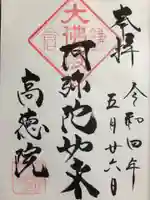 奉拝
令和四年
五月廿六日
大佛
阿弥陀如来
高徳院